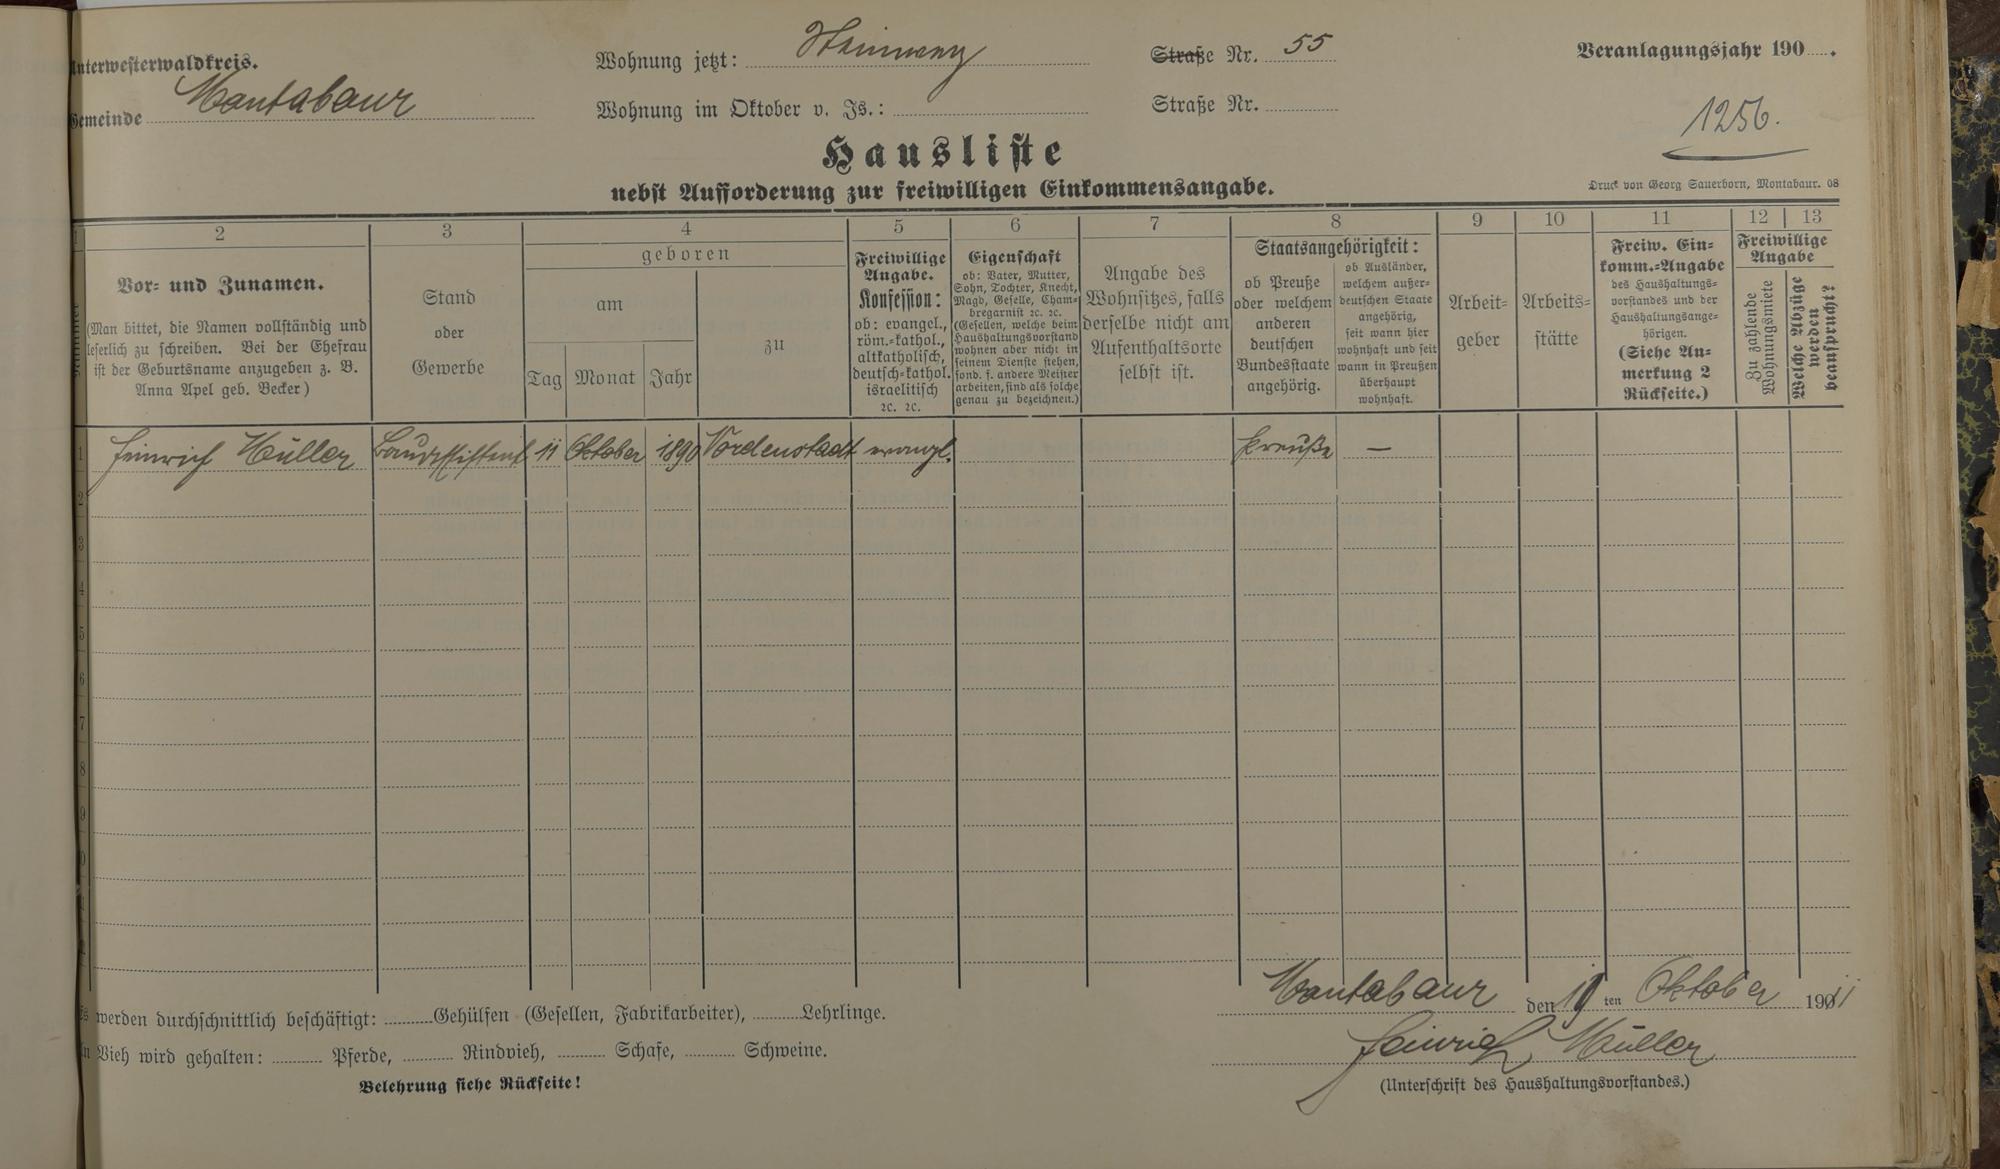 Unterwesterwaldkreis.
Gemeinde Montabaur
Wohnung jetzt: Steinweg Straße Nr. 55
Wohnung im Oktober v. Js.: Straße Nr.
Veranlagungsjahr 190 .
1256.
Hausliste
nebst Aufforderung zur freiwilligen Einkommensangabe.
Druck von Georg Sauerborn, Montabaur. 08
1 2 3 4 5 6 7 8 9 10 11 12 13
Nummer
Vor- und Zunamen.
(Man bittet, die Namen vollständig und
leserlich zu schreiben. Bei der Ehefrau
ist der Geburtsname anzugeben z. B.
Anna Apel geb. Becker)
Stand
oder
Gewerbe
geboren
am
Tag Monat Jahr
zu
Freiwillige
Angabe.
Konfession:
ob: evangel.,
röm.-kathol.,
altkatholisch,
deutsch-kathol.
israelitisch
ꝛc. ꝛc.
Eigenschaft
ob: Vater, Mutter,
Sohn, Tochter, Knecht,
Magd, Geselle, Cham-
bregarnist ꝛc. ꝛc.
(Gesellen, welche beim
Haushaltungsvorstand
wohnen aber nicht in
seinem Dienste stehen,
sond. f. andere Meister
arbeiten, sind als solche
genau zu bezeichnen.)
Angabe des
Wohnsitzes, falls
derselbe nicht am
Aufenthaltsorte
selbst ist.
Staatsangehörigkeit:
ob Preuße
oder welchem
anderen
deutschen
Bundesstaate
angehörig.
ob Ausländer,
welchem außer-
deutschen Staate
angehörig,
seit wann hier
wohnhaft und seit
wann in Preußen
überhaupt
wohnhaft.
Arbeit-
geber
Arbeits-
stätte
Freiw. Ein-
komm.-Angabe
des Haushaltungs-
vorstandes und der
Haushaltungsange-
hörigen.
(Siehe An-
merkung 2
Rückseite.)
Freiwillige
Angabe
Zu zahlende
Wohnungsmiete
Welche Abzüge
werden
beansprucht?
1 Heinrich Müller Bauassistent 11 Oktober 1890 Nordenstadt evangl. Preuße —
2
3
4
5
6
7
8
9
0
1
2
Es werden durchschnittlich beschäftigt: Gehülfen (Gesellen, Fabrikarbeiter), Lehrlinge.
An Vieh wird gehalten: Pferde, Rindvieh, Schafe, Schweine.
Belehrung siehe Rückseite!
Montabaur den 19 ten Oktober 1911
Heinrich Müller
(Unterschrift des Haushaltungsvorstandes.)